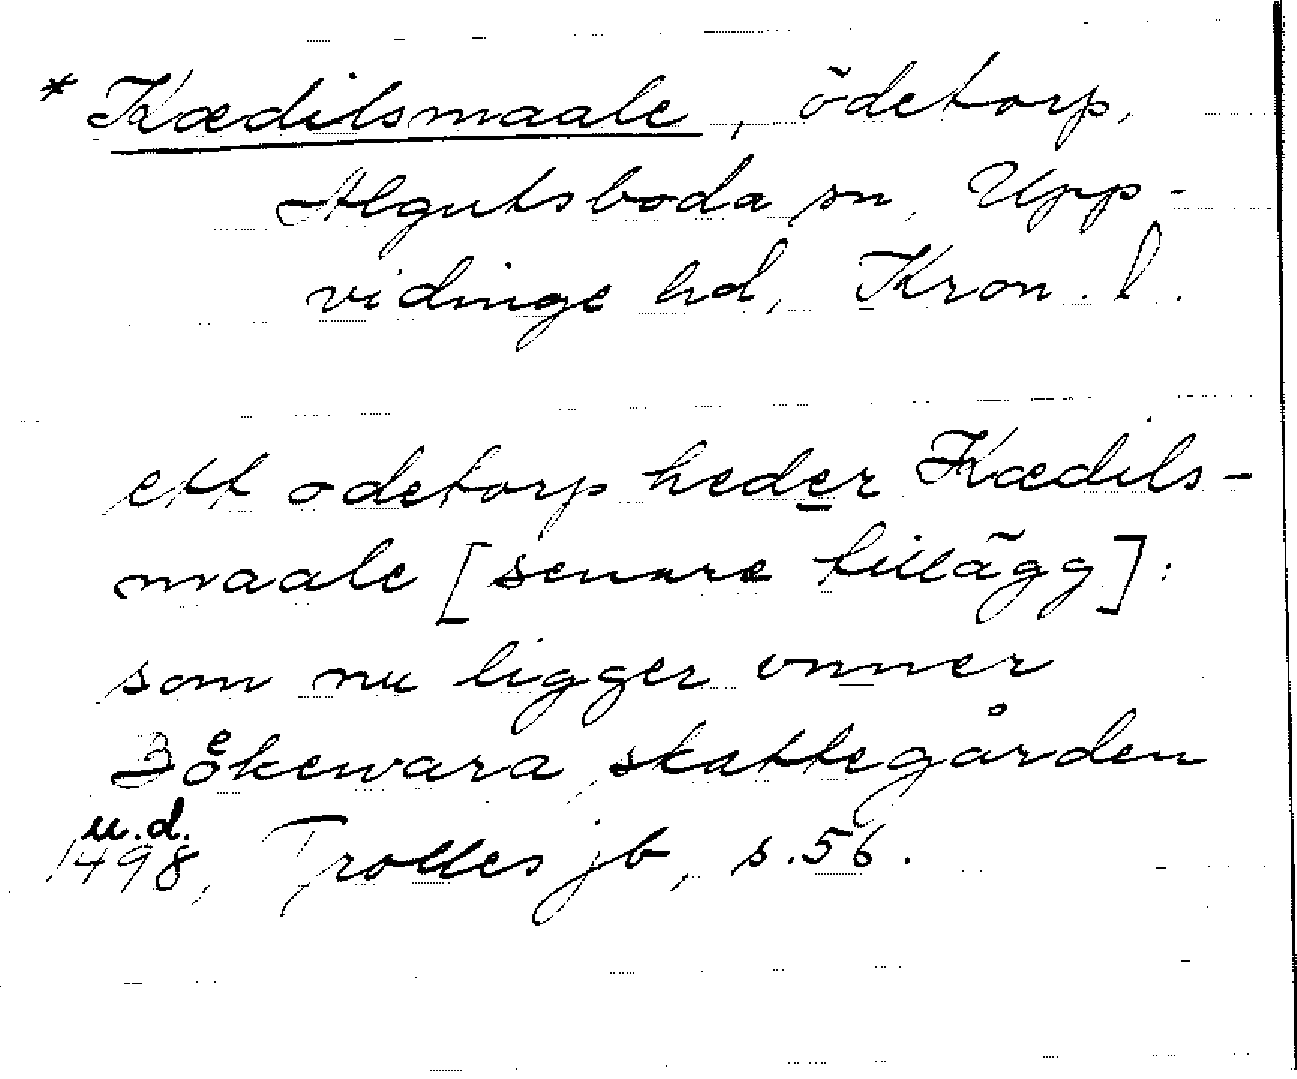 * Kædilsmaale, ödetorp,
Algutsboda sn, Upp-
vidinge hd, Kron. l.
ett odetorp heder Kædils-
maale [senare tillägg]:
som nu ligger vnner
Boͤkewara skattegården
u.d.
1498, Trolles jb, s. 56.